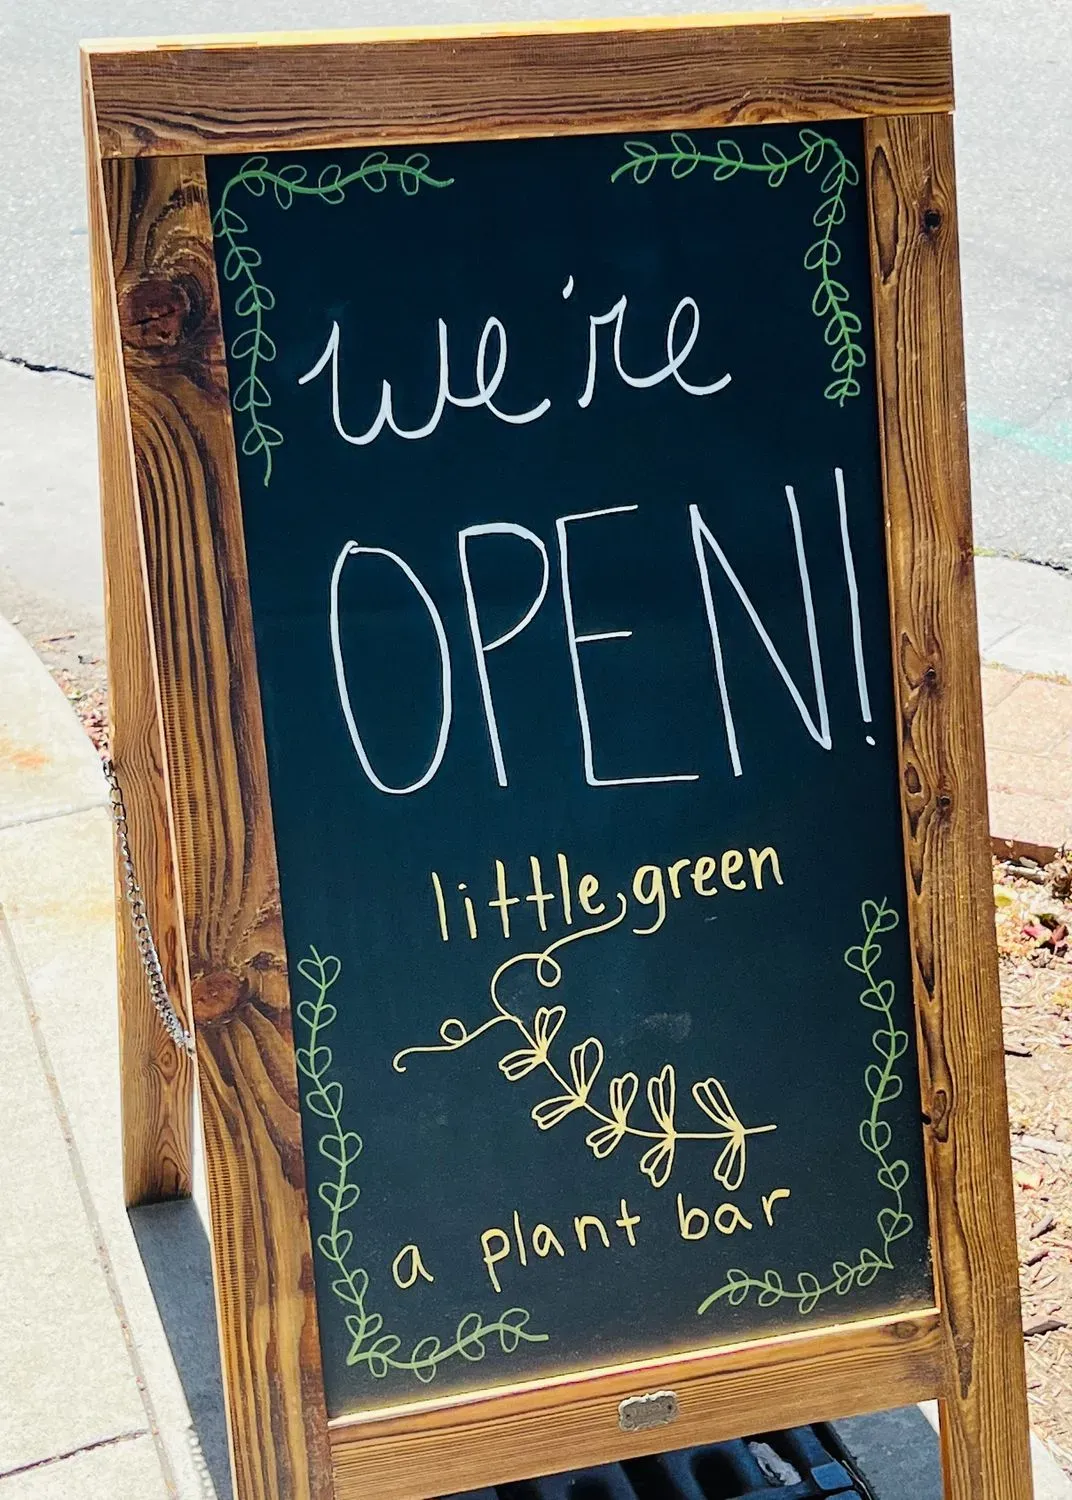 we're
OPEN!
little green
a plant bar